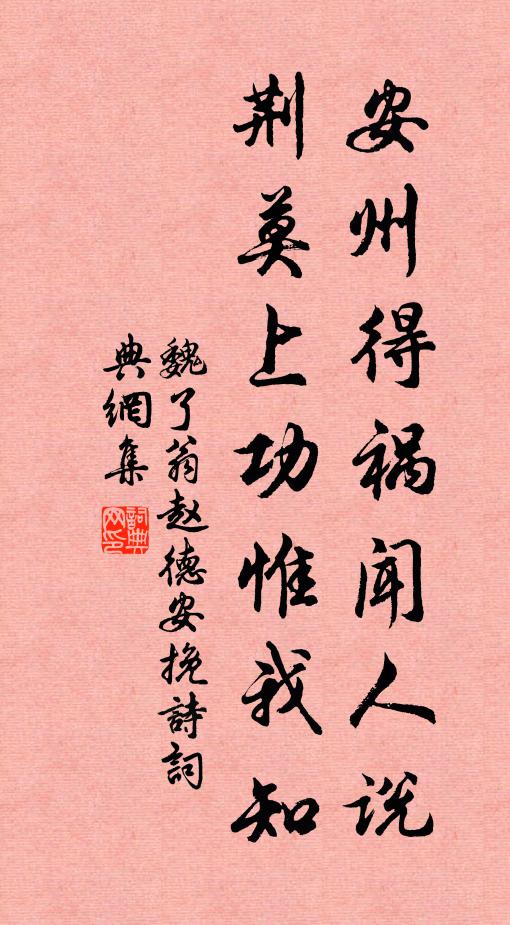 安州得祸闻人说
荆莫上功惟我知
魏了翁赵德安挽詩詞
典網集
詞典網印